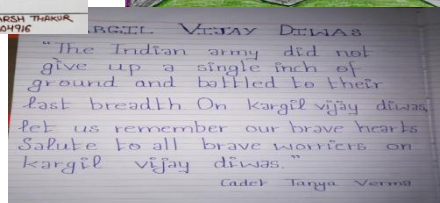 RSH THAKUR
04916
KARGIL VIJAY DIWAS
"The Indian army did not
give up a single inch of
ground and battled to their
last breadth On kargil vijay diwas,
let us remember our brave hearts
Salute to all brave worriers on
kargil vijay diwas."
Cadet Tanya Verma